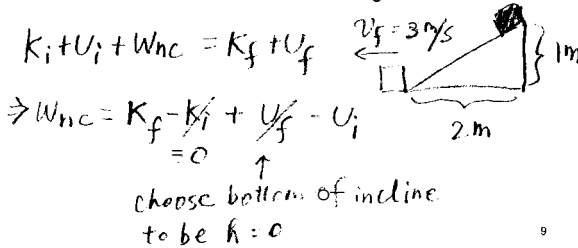 Ki + Ui + Wnc = Kf + Uf
vf = 3 m/s
1m
2m
⇒ Wnc = Kf - Ki + Uf - Ui
= 0
↑
choose bottom of incline
to be h = 0
9